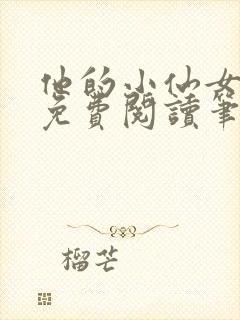 他的小仙女
免費閱讀筆
榴芒